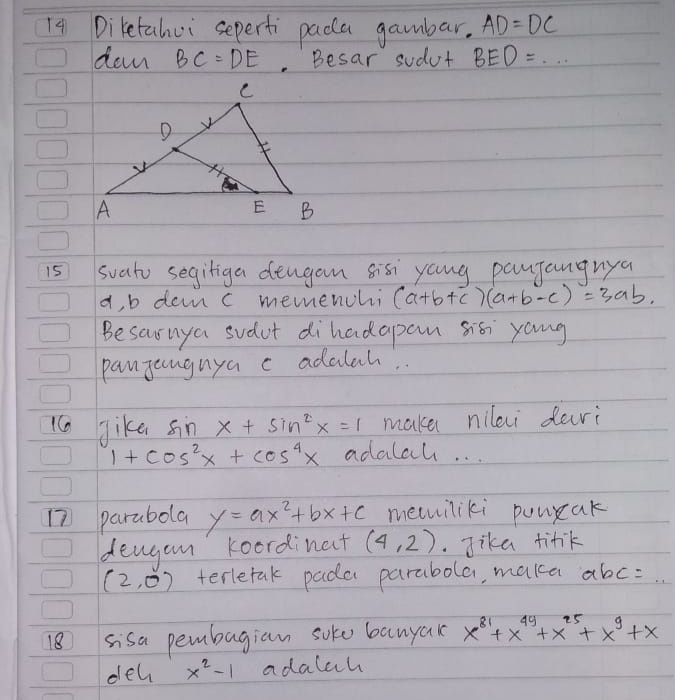 14 Diketahui seperti pada gambar. AD = DC
dan BC = DE. Besar sudut BED = ...
C
D
A E B
15 Suatu segitiga dengan sisi yang panjangnya
a, b dan c memenuhi (a+b+c)(a+b-c) = 3ab.
Besarnya sudut dihadapan sisi yang
panjangnya c adalah ..
16 Jika sin x + sin²x = 1 maka nilai dari
1 + cos²x + cos⁴x adalah ...
17 parabola y = ax² + bx + c memiliki puncak
dengan koordinat (4,2). Jika titik
(2,0) terletak pada parabola, maka abc = ..
18 sisa pembagian suku banyak x⁸¹ + x⁴⁹ + x²⁵ + x⁹ + x
deh x² - 1 adalah